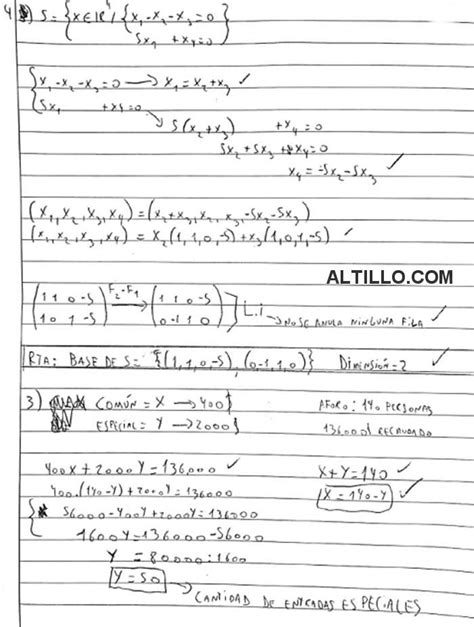 4) S = {X ∈ ℝ⁴ / { x₁-x₂-x₃=0
5x₁ +x₄=0 }
{ x₁-x₂-x₃=0 → x₁=x₂+x₃ ✓
{ 5x₁ +x₄=0
5(x₂+x₃) +x₄=0
5x₂+5x₃ +x₄=0
x₄=-5x₂-5x₃ ✓
(x₁,x₂,x₃,x₄)=(x₂+x₃,x₂,x₃,-5x₂-5x₃)
(x₁,x₂,x₃,x₄)=x₂(1,1,0,-5)+x₃(1,0,1,-5) ✓
ALTILLO.COM
(1 1 0 -5) F₂-F₁ (1 1 0 -5) } L.i
(1 0 1 -5) → (0 -1 1 0) → NO SE ANULA NINGUNA FILA ✓
RTA: BASE DE S= {(1,1,0-5), (0-1,1,0)} DIMENSIÓN=2 ✓
3) COMÚN = X → 400$ AFORO: 140 PERSONAS
ESPECIAL = Y → 2000$ 136000$ RECAUDADO
400X+2000Y=136,000 ✓ X+Y=140
400.(140-Y)+2000Y=136000 X=140-Y ✓
56000-400Y+2000Y=136000
1600Y=136000-56000
Y = 80000:1600
Y=50 → CANTIDAD DE ENTRADAS ESPECIALES